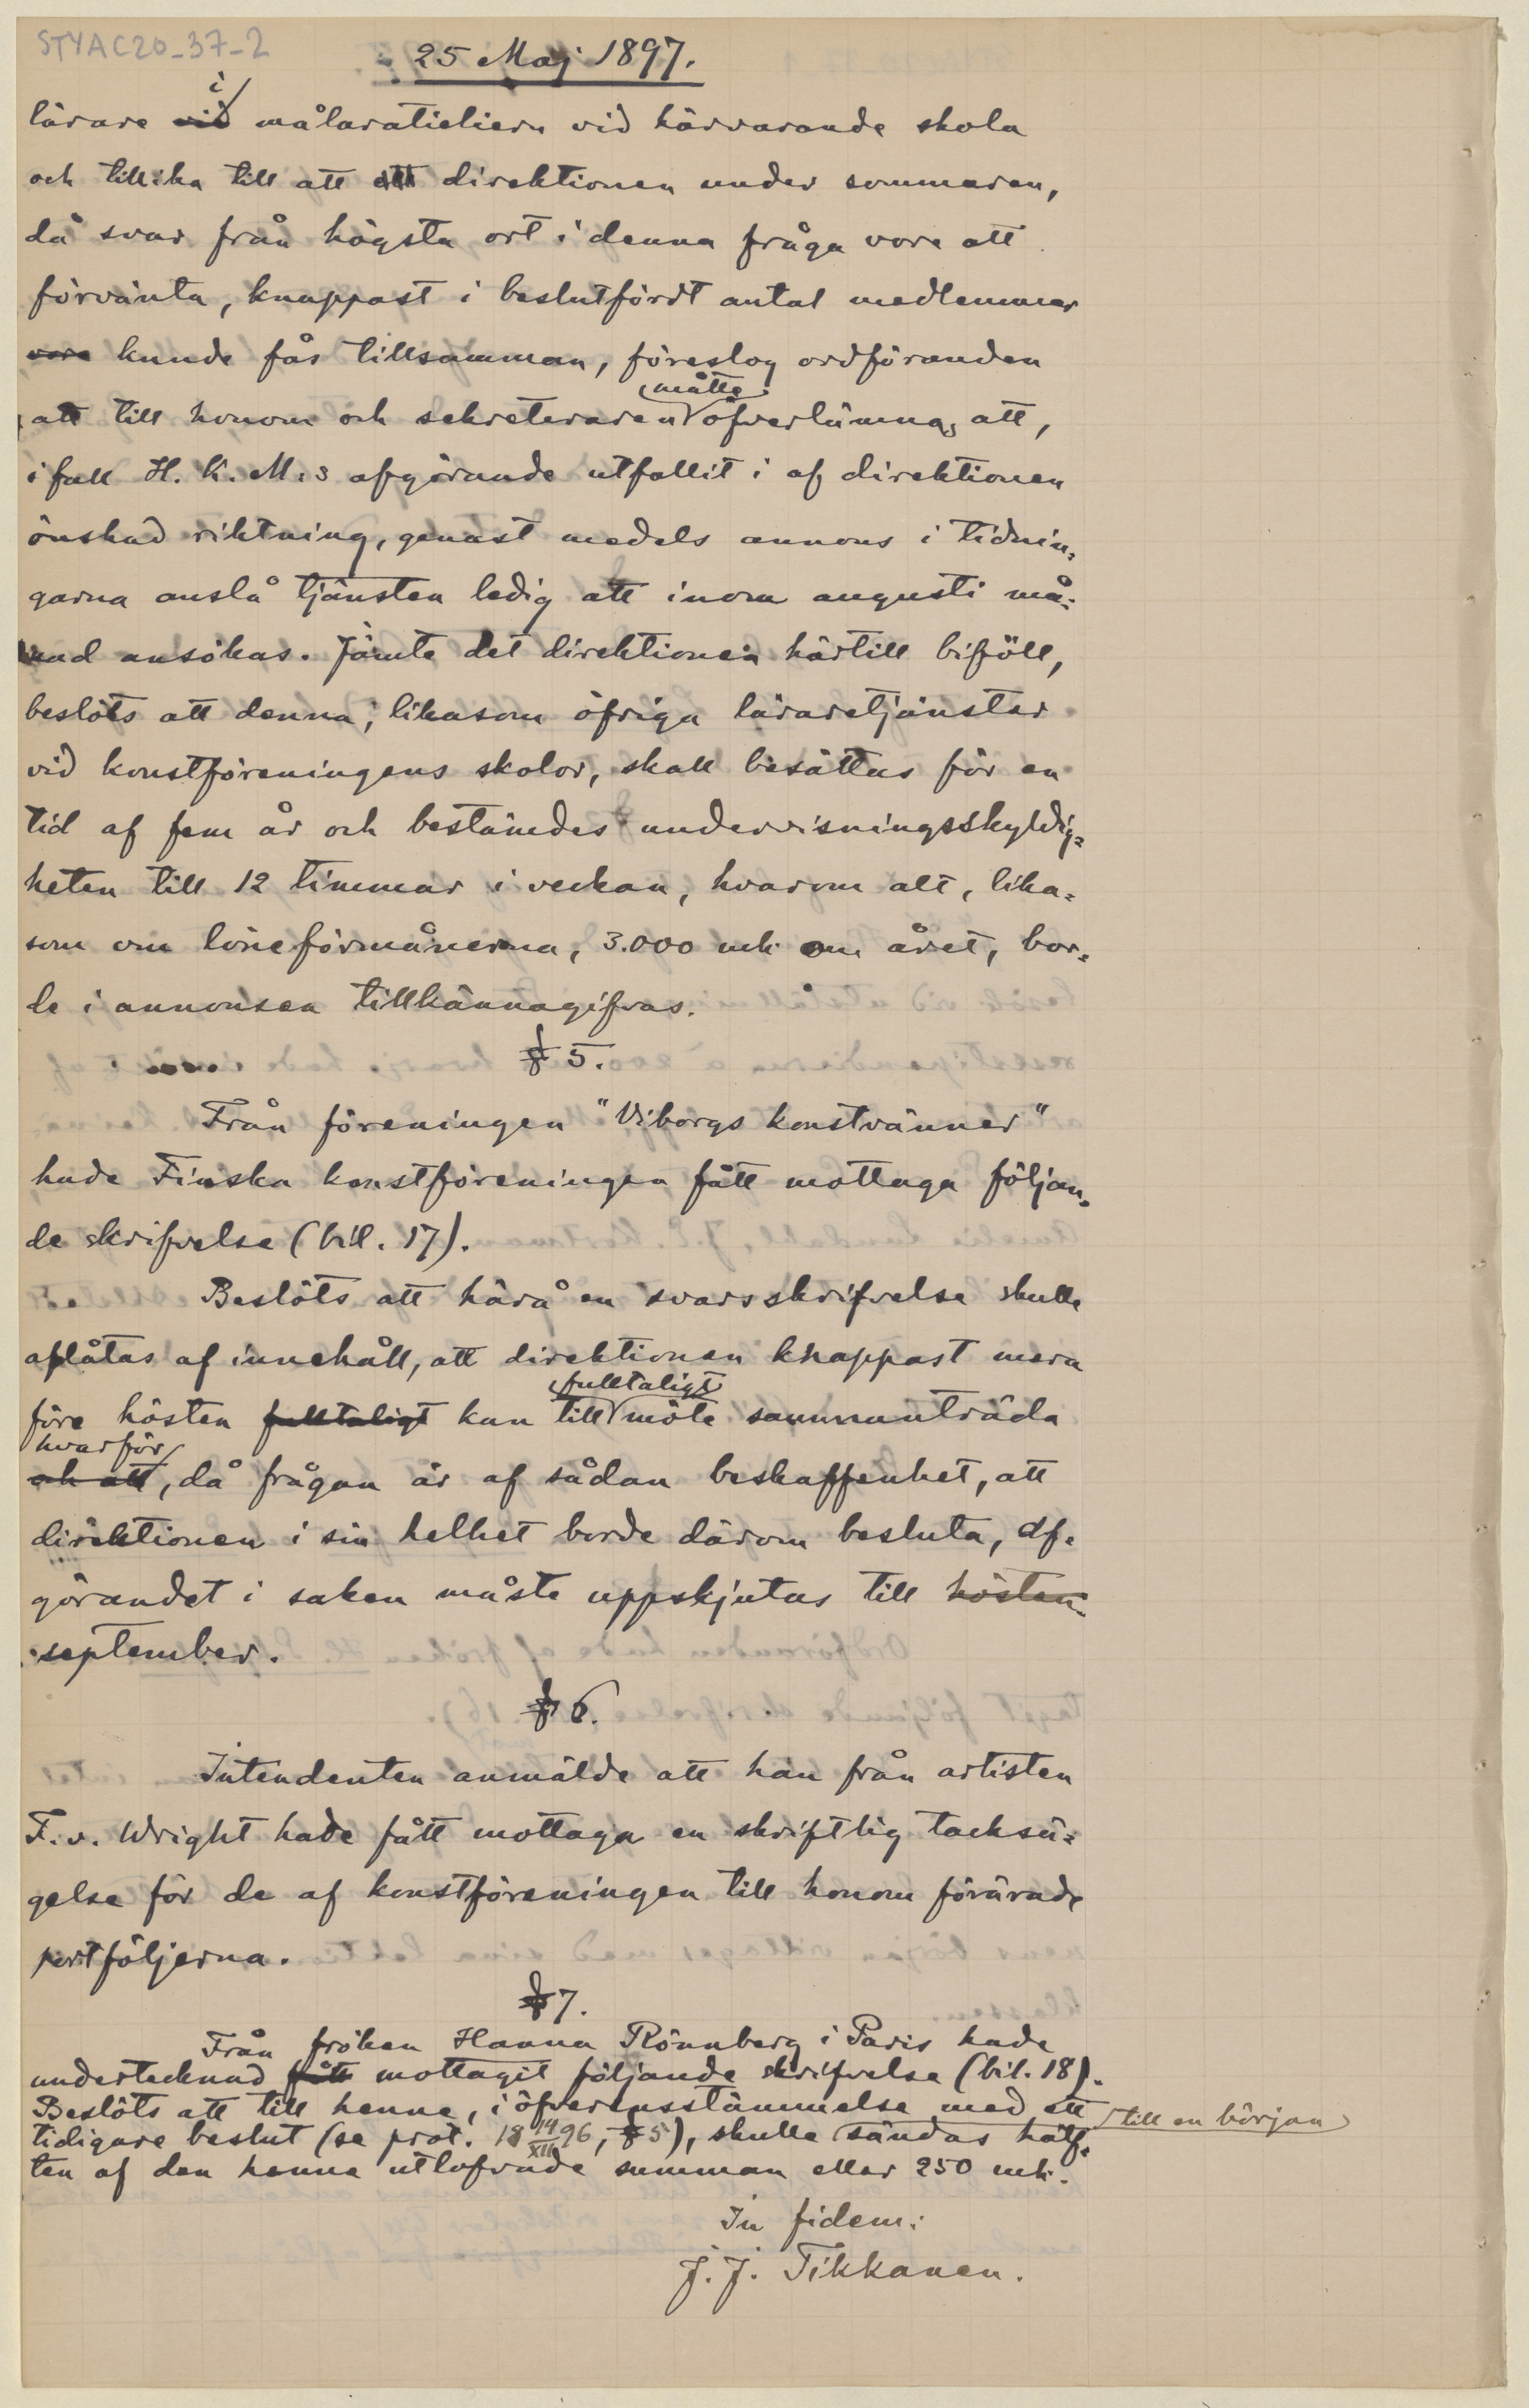 STYAC20_37-2
25 Maj 1897.
i
lärare vid målaratieliern vid härvarande skola
och tillika till att att direktionen under sommaren,
då svar från högsta ort i denna fråga vore att
förvänta, knappast i beslutfördt antal medlemmar
vore kunde fås tillsamman, föreslog ordföranden
måtte
att till honom och sekreteraren öfverlämnas att,
i fall H. K. M:s afgörande utfallit i af direktionen
önskad riktning, genast medels annons i tidnin-
garna anslå tjänsten ledig att inom augusti må-
nad ansökas. Jämte det direktionen härtill biföll,
beslöts att denna, likasom öfriga läraretjänster
vid konstföreningens skolor, skall besättas för en
tid af fem år och bestämdes undervisningsskyldig-
heten till 12 timmar i veckan, hvarom allt, lika-
som om löneförmånerna, 3.000 mk om året, bor-
de i annonsen tillkännagifvas.
§ 5.
Från föreningen "Viborgs konstvänner"
hade Finska konstföreningen fått mottaga följan-
de skrifvelse (bil. 17).
Beslöts att härå en svarsskrifvelse skulle
aflåtas af innehåll, att direktionen knappast mera
fulltaligt
före hösten fulltaligt kan till möte sammanträda
hvarför
och att, då frågan är af sådan beskaffenhet, att
direktionen i sin helhet borde därom besluta, af-
görandet i saken måste uppskjutas till hösten.
september.
§ 6.
Intendenten anmälde att han från artisten
F. v. Wright hade fått mottaga en skriftlig tacksä-
gelse för de af konstföreningen till honom förärade
portföljerna.
§ 7.
Från fröken Hanna Rönnberg i Paris hade
undertecknad fått mottagit följande skrifvelse (bil. 18).
Beslöts att till henne, i öfverensstämmelse med ett
till en början
tidigare beslut (se prot. 18 14/XII 96, § 5), skulle sändas hälf-
ten af den henne utlofvade summan eller 250 mk.
In fidem:
J. J. Tikkanen.